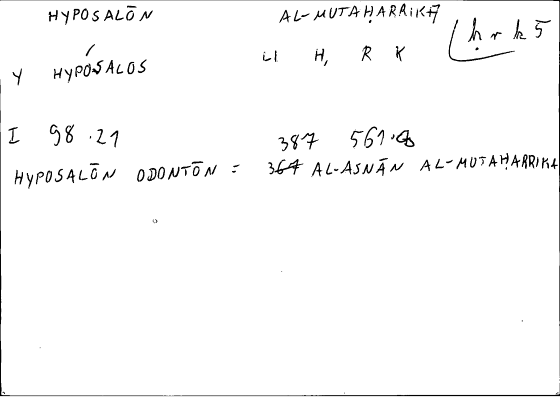 HYPOSALŌN AL-MUTAḤARRIKA
ḥrk5
Y HYPÓSALOS LI Ḥ, R K
I 98.21 387 561.8
HYPOSALŌN ODONTŌN = 364 AL-ASNĀN AL-MUTAḤARRIKA